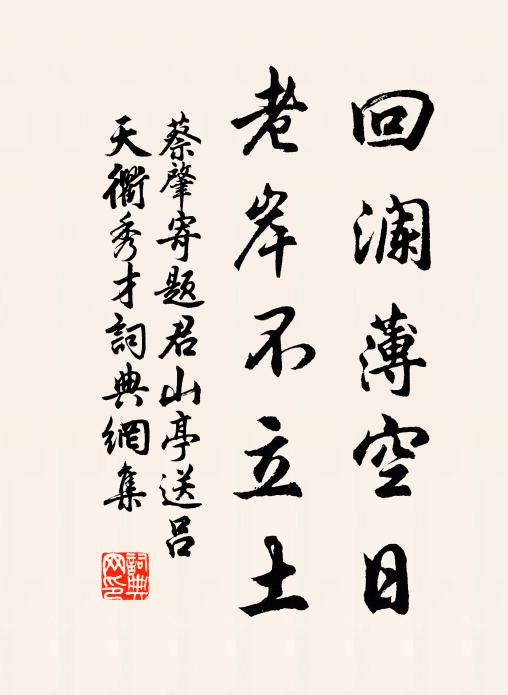 回澜薄空日
老岸不立土
蔡肇寄题君山亭送吕
天衢秀才詞典網集
詞典網印